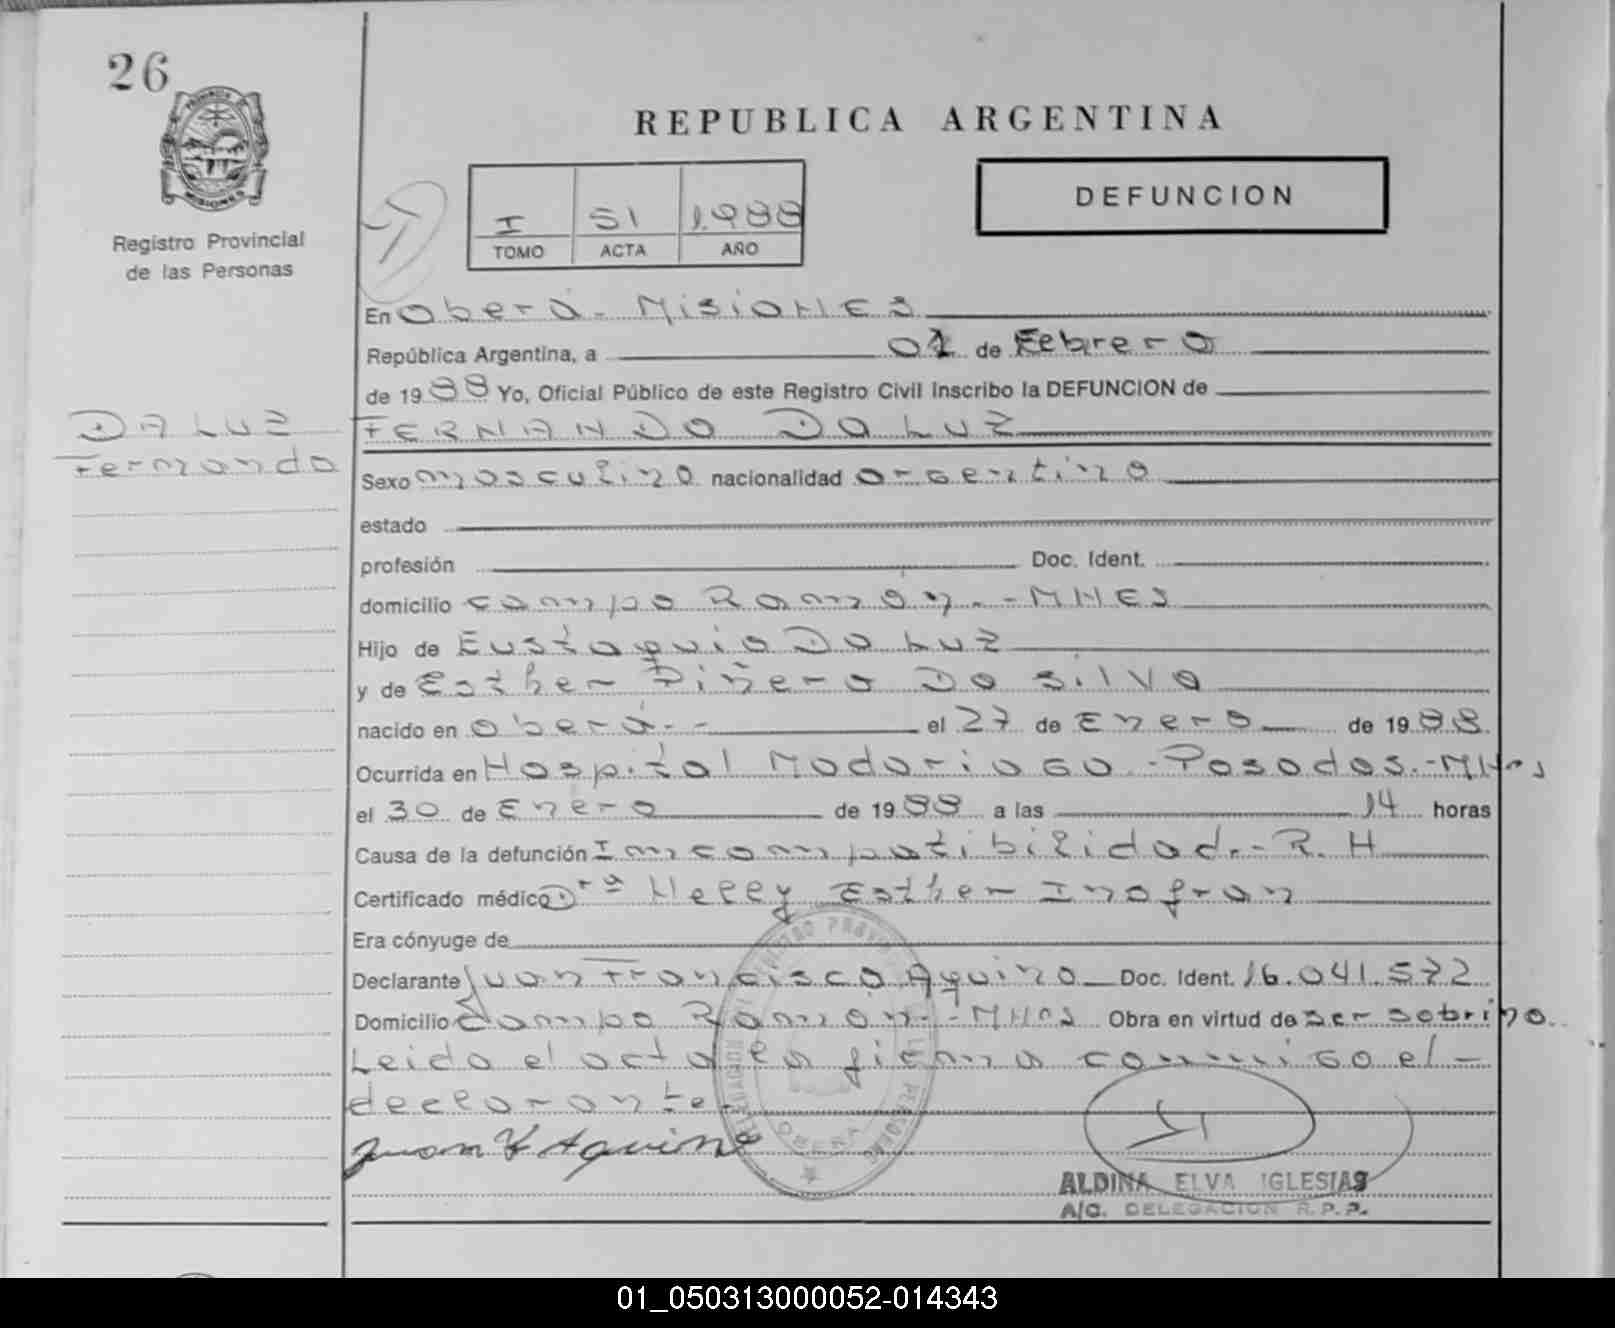 26
REPUBLICA ARGENTINA
DEFUNCION
I 51 1.988
TOMO ACTA AÑO
MISIONES
Registro Provincial
de las Personas
En Oberá - Misiones
República Argentina, a 01 de Febrero
de 1988 Yo, Oficial Público de este Registro Civil Inscribo la DEFUNCION de
DA LUZ
Fernando
FERNANDO DA LUZ
Sexo masculino nacionalidad argentino
estado
profesión Doc. Ident.
domicilio campo Ramón.- MNES
Hijo de Eustaquio Da Luz
y de Esther Piñero Da Silva
nacido en Oberá.- el 27 de Enero de 1988
Ocurrida en Hospital Madariaga.- Posadas.- MNes
el 30 de Enero de 1988 a las 14 horas
Causa de la defunción Imcompatibilidad.- R.H
Certificado médico Drª Nelly Esther Inofran
Era cónyuge de
Declarante Juan Francisco Aquino Doc. Ident. 16.041.572
Domicilio Campo Ramón.- MNes Obra en virtud de ser sobrino.
Leida el acta la firma conmigo el -
declarante.
Juan F Aquino
REGISTRO PROVINCIAL DE LAS PERSONAS
DELEGACION
OBERA
ALDINA ELVA IGLESIAS
A/C. DELEGACION R.P.P.
01_050313000052-014343